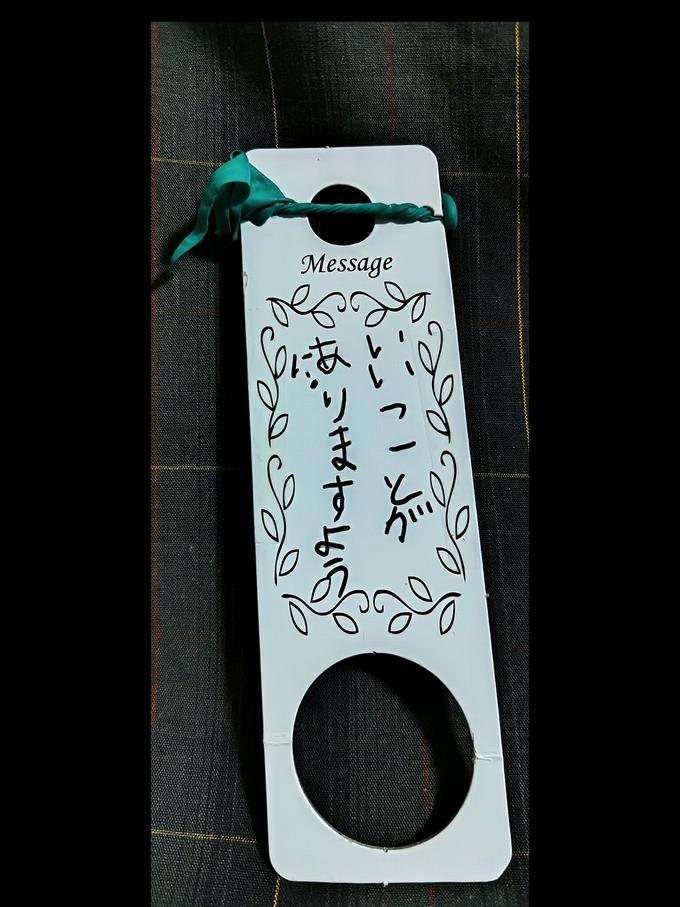 Message
いいことが
ありますよう
に!